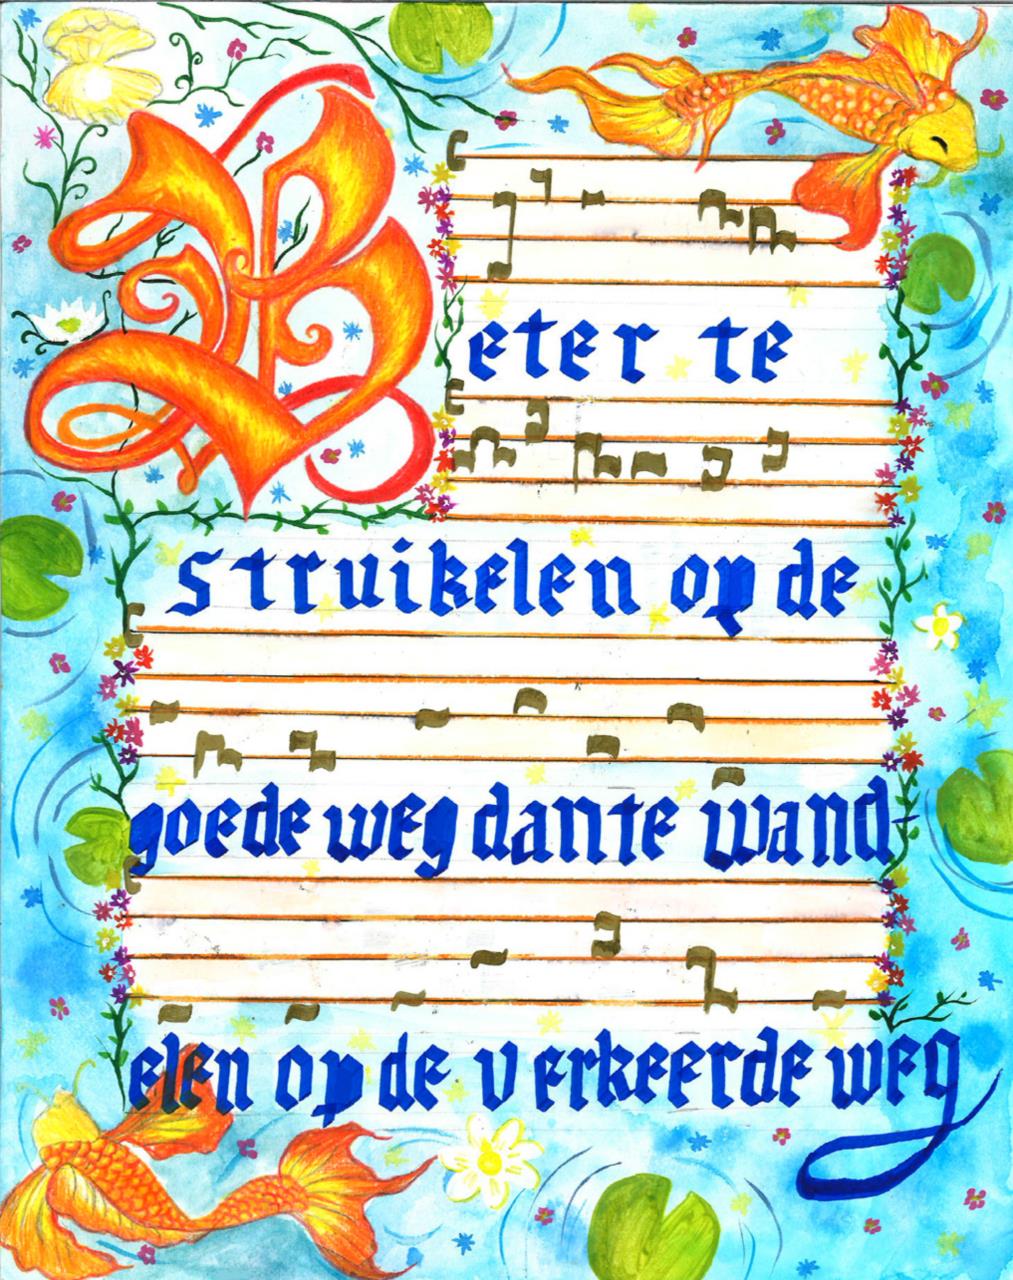 Beter te
struikelen op de
goede weg dan te wand-
elen op de verkeerde weg